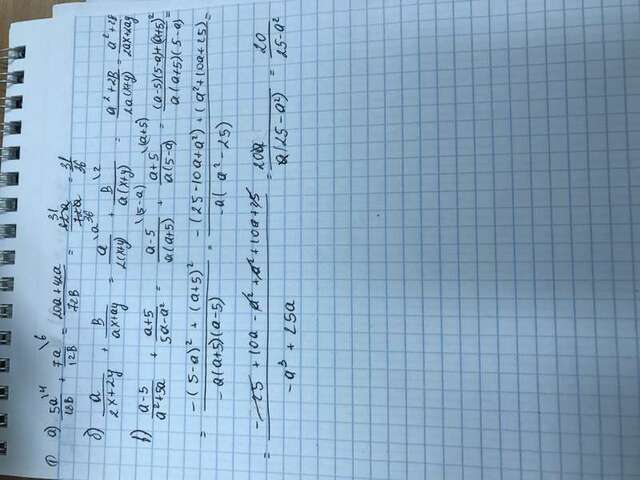 31
1) а) 5a\4/18B + 7a\6/12B = 20a+42a/72B = 62a/72a = 31/36
36
б) a/2x+2y + B/ax+ay = a\a/2(x+y) + B\2/a(x+y) = a²+2B/2a(x+y) = a²+2B/2ax+2ay
в) a-5/a²+5a + a+5/5a-a² = a-5\(5-a)/a(a+5) + a+5\(a+5)/a(5-a) = (a-5)(5-a)+(a+5)²/a(a+5)(5-a) =
= -(5-a)²+(a+5)²/-a(a+5)(a-5) = -(25-10a+a²)+(a²+10a+25)/-a(a²-25) =
= -25+10a-a²+a²+10a+25/-a³+25a = 20a/a(25-a²) = 20/25-a²